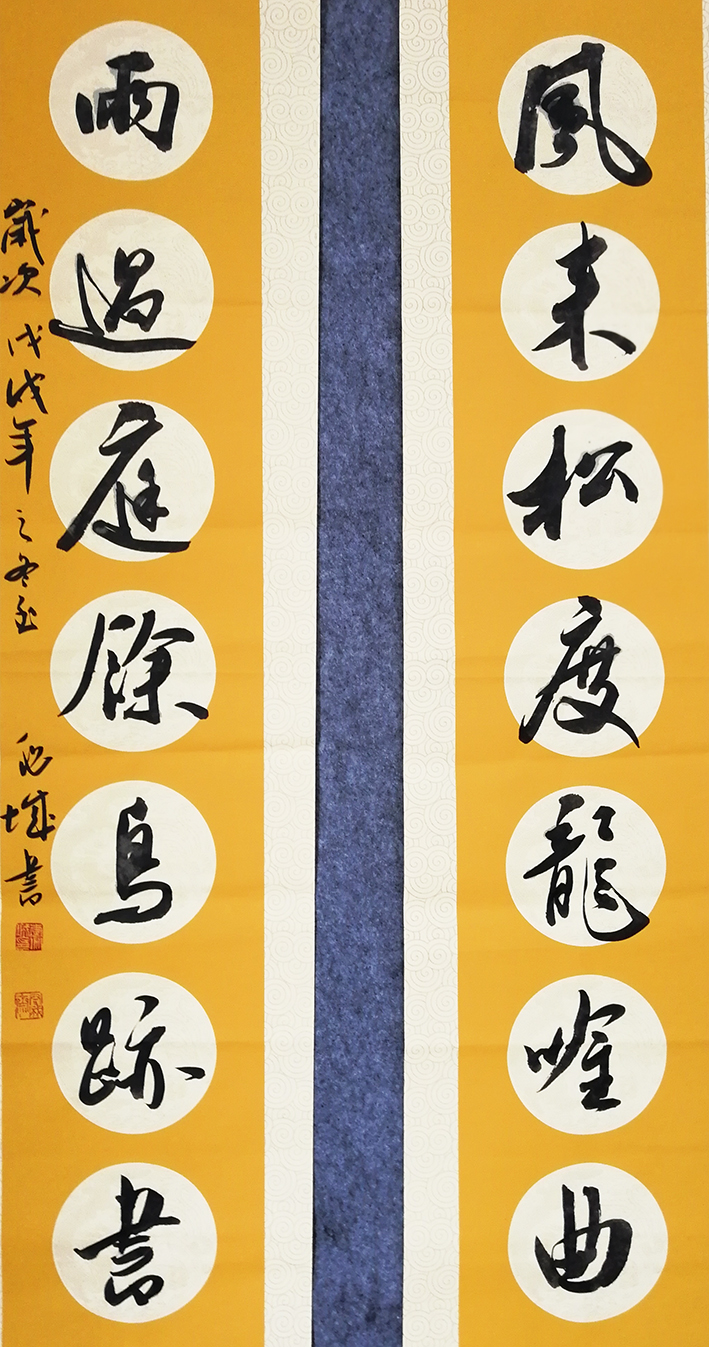 風来松度龍唫曲
雨過庭餘鳥跡書
歲次戊戌年之冬至
城書